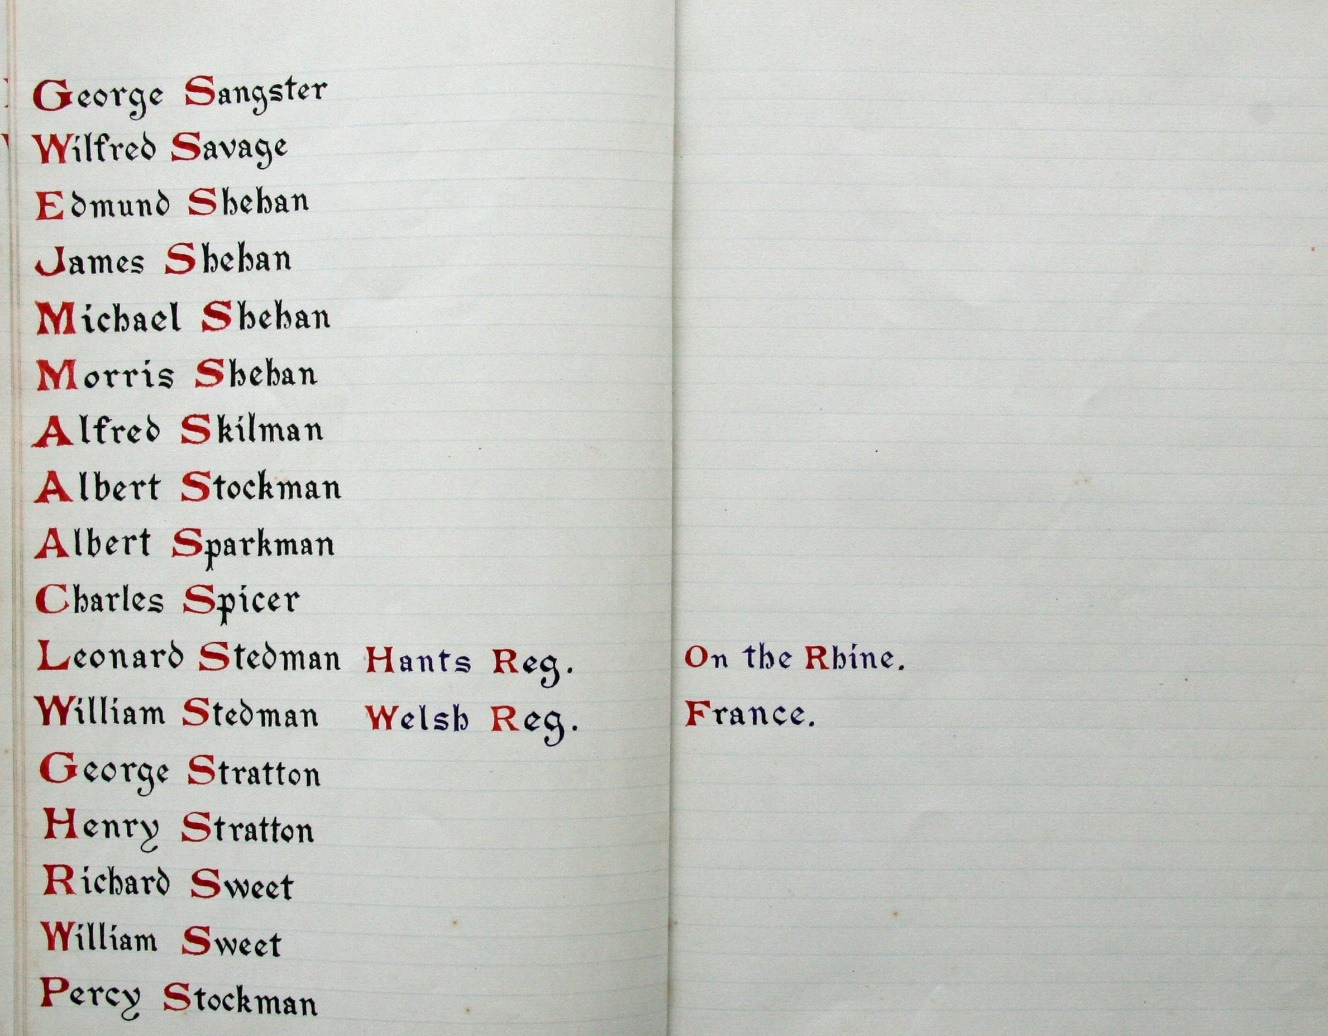 George Sangster
Wilfred Savage
Edmund Shehan
James Shehan
Michael Shehan
Morris Shehan
Alfred Skilman
Albert Stockman
Albert Sparkman
Charles Spicer
Leonard Stedman Hants Reg. On the Rhine.
William Stedman Welsh Reg. France.
George Stratton
Henry Stratton
Richard Sweet
William Sweet
Percy Stockman